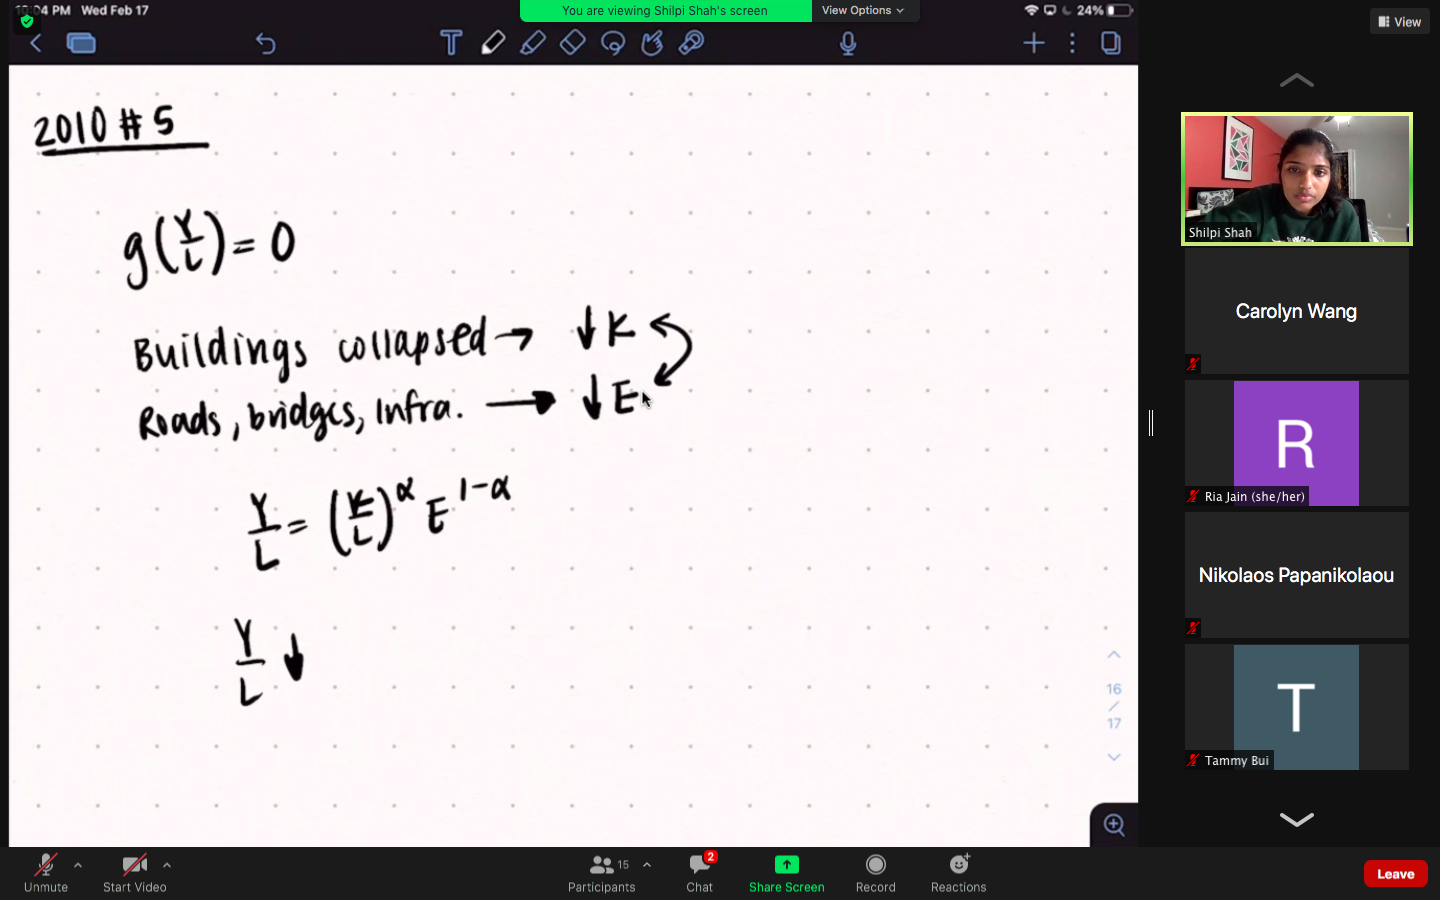 10:04 PM Wed Feb 17
You are viewing Shilpi Shah's screen
View Options
24%
View
2010 # 5
g(Y/L) = 0
Buildings collapsed → ↓ K
Roads, bridges, Infra. → ↓ E
Y/L = (K/L)^α E^1-α
Y/L ↓
16
/
17
Shilpi Shah
Carolyn Wang
R
Ria Jain (she/her)
Nikolaos Papanikolaou
T
Tammy Bui
Unmute
Start Video
Participants
15
Chat
2
Share Screen
Record
Reactions
Leave